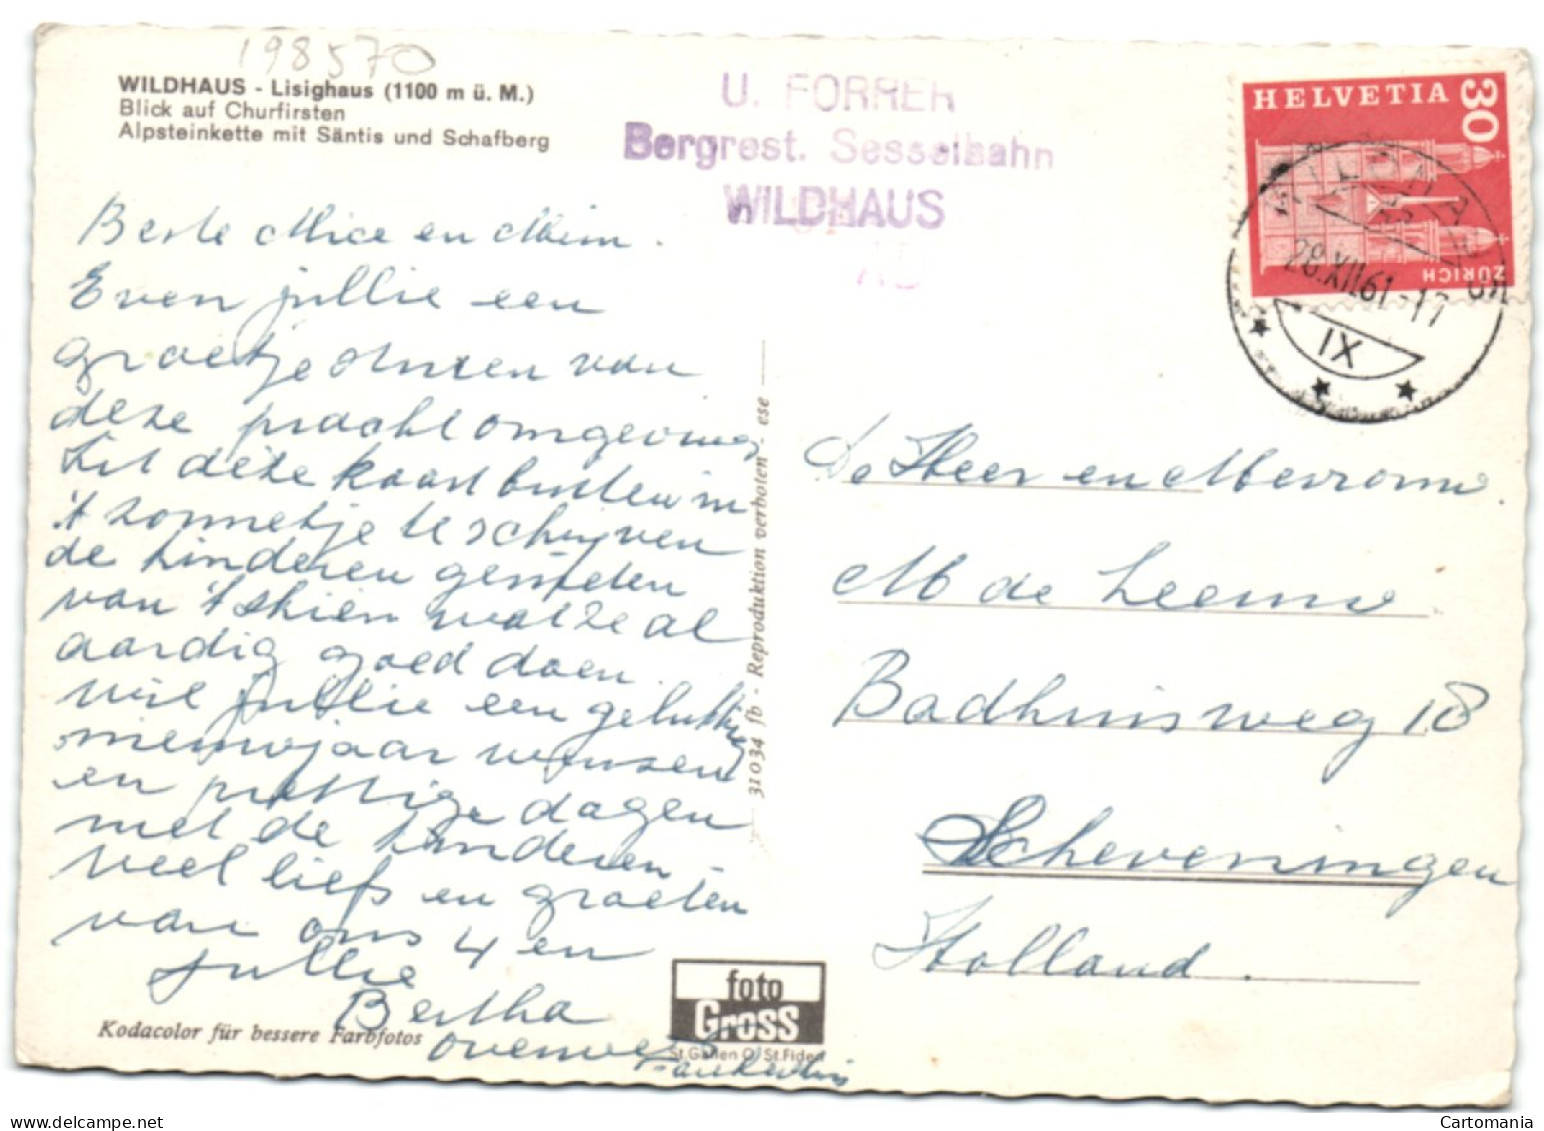 198570
WILDHAUS - Lisighaus (1100 m ü. M.)
Blick auf Churfirsten
Alpsteinkette mit Säntis und Schafberg
U. FORRER
Bergrest. Sesselbahn
WILDHAUS
HELVETIA
30
ZÜRICH
WILDHAUS
28.XII.61-17
IX
Beste Mice en Mim.
Even jullie een
groetje sturen van
deze prachtomgeving
Zit deze kaart buiten in
't zonnetje te schrijven
de kinderen genieten
van 't skiën wat ze al
aardig goed doen.
wil jullie een gelukkig
nieuwjaar wensen
en prettige dagen
met de kinderen -
veel liefs en groeten
van ons 4 en
jullie
Bertha
De Heer en Mevrouw
M de Leeuw
Badhuisweg 18
Scheveningen
Holland.
31034 fb - Reproduktion verboten - ese
Kodacolor für bessere Farbfotos
foto
Gross
St.Gallen O/St.Fiden
Cartomania